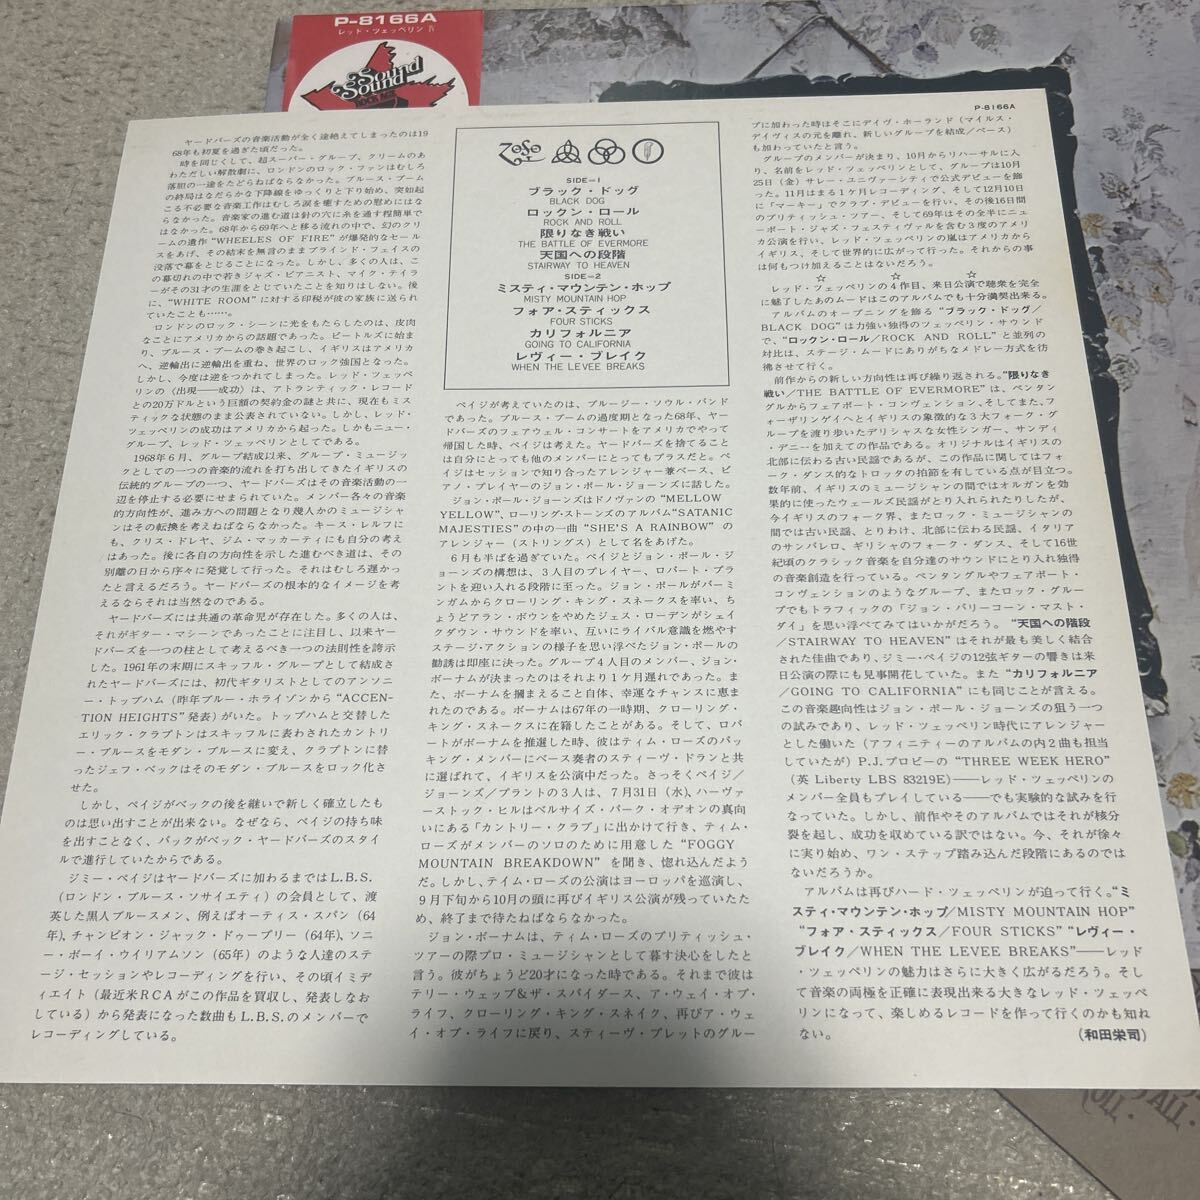 P-8166A
レッド・ツェッペリン Ⅳ
Sound
Sound
ROCK AGE
P-8166A
ヤードバーズの音楽活動が全く途絶えてしまったのは19
68年も初夏を過ぎた頃だった。
時を同じくして、超スーパー・グループ、クリームのあ
わただしい解散劇に、ロンドンのロック・ファンはむしろ
落胆の一途をたどらねばならなかった。ブルース・ブーム
の終局はなだらかな下降線をゆっくりと下り始め、突如起
こる不必要な音楽工作はむしろ涙を癒すための慰めにはな
らなかった。音楽家の進む道は針の穴に糸を通す程簡単で
はなかった。68年から69年へと移る流れの中で、幻のクリ
ームの遺作“WHEELES OF FIRE”が爆発的なセール
スをあげ、その結末を無言のままブラインド・フェイスの
没落で幕をとじることになった。しかし、多くの人は、こ
の幕切れの中で若きジャズ・ピアニスト、マイク・テイラ
ーがその31才の生涯をとじていたことを知りはしない。後
に、“WHITE ROOM”に対する印税が彼の家族に送られ
ていたことも……。
ロンドンのロック・シーンに光をもたらしたのは、皮肉
なことにアメリカからの話題であった。ビートルズに始ま
り、ブルース・ブームの巻き起こし、イギリスはアメリカ
へ、逆輸出に逆輸出を重ね、世界のロック強国となった。
しかし、今度は逆をつかれてしまった。レッド・ツェッペ
リンの〈出現——成功〉は、アトランティック・レコード
との20万ドルという巨額の契約金の謎と共に、現在もミス
ティックな状態のまま公表されていない。しかし、レッド・
ツェッペリンの成功はアメリカから起った。しかもニュー・
グループ、レッド・ツェッペリンとしてである。
1968年6月、グループ結成以来、グループ・ミュージッ
クとしての一つの音楽的流れを打ち出してきたイギリスの
伝統的グループの一つ、ヤードバーズはその音楽活動の一
辺を停止する必要にせまられていた。メンバー各々の音楽
的方向性が、進み方への問題となり幾人かのミュージシャ
ンはその転換を考えねばならなかった。キース・レルフに
も、クリス・ドレヤ、ジム・マッカーティにも自分の考え
はあった。後に各自の方向性を示した進むべき道は、その
別離の日から序々に発覚して行った。それはむしろ遅かっ
たと言えるだろう。ヤードバーズの根本的なイメージを考
えるならそれは当然なのである。
ヤードバーズには共通の革命児が存在した。多くの人は、
それがギター・マシーンであったことに注目し、以来ヤー
ドバーズを一つの柱として考えるべき一つの法則性を誇示
した。1961年の末期にスキッフル・グループとして結成さ
れたヤードバーズには、初代ギタリストとしてのアンソニ
ー・トップハム（昨年ブルー・ホライゾンから“ACCEN-
TION HEIGHTS”発表）がいた。トップハムと交替した
エリック・クラプトンはスキッフルに表わされたカントリ
ー・ブルースをモダン・ブルースに変え、クラプトンに替
ったジェフ・ベックはそのモダン・ブルースをロック化さ
せた。
しかし、ペイジがベックの後を継いで新しく確立したも
のは思い出すことが出来ない。なぜなら、ペイジの持ち味
を出すことなく、バックがベック・ヤードバーズのスタイ
ルで進行していたからである。
ジミー・ペイジはヤードバーズに加わるまではL.B.S.
（ロンドン・ブルース・ソサイエティ）の会員として、渡
英した黒人ブルースメン、例えばオーティス・スパン（64
年)、チャンピオン・ジャック・ドゥープリー（64年)、ソニ
ー・ボーイ・ウイリアムソン（65年）のような人達のステ
ージ・セッションやレコーディングを行い、その頃イミデ
ィエイト（最近米RCAがこの作品を買収し、発表しなお
している）から発表になった数曲もL.B.S.のメンバーで
レコーディングしている。
ZOSO
SIDE=1
ブラック・ドッグ
BLACK DOG
ロックン・ロール
ROCK AND ROLL
限りなき戦い
THE BATTLE OF EVERMORE
天国への段階
STAIRWAY TO HEAVEN
SIDE=2
ミスティ・マウンテン・ホップ
MISTY MOUNTAIN HOP
フォア・スティックス
FOUR STICKS
カリフォルニア
GOING TO CALIFORNIA
レヴィー・ブレイク
WHEN THE LEVEE BREAKS
ペイジが考えていたのは、ブルージー・ソウル・バンド
であった。ブルース・ブームの過度期となった68年、ヤー
ドバーズのフェアウェル・コンサートをアメリカでやって
帰国した時、ペイジは考えた。ヤードバーズを捨てること
は自分にとっても他のメンバーにとってもプラスだと。ペ
イジはセッションで知り合ったアレンジャー兼ベース、ピ
アノ・プレイヤーのジョン・ポール・ジョーンズに話した。
ジョン・ポール・ジョーンズはドノヴァンの“MELLOW
YELLOW”、ローリング・ストーンズのアルバム“SATANIC
MAJESTIES”の中の一曲“SHE'S A RAINBOW”の
アレンジャー（ストリングス）として名をあげた。
6月も半ばを過ぎていた。ペイジとジョン・ポール・ジ
ョーンズの構想は、3人目のプレイヤー、ロバート・プラ
ントを迎い入れる段階に至った。ジョン・ポールがバーミ
ンガムからクローリング・キング・スネークスを率い、ち
ょうどアラン・ボウンをやめたジェス・ローデンがシェイ
クダウン・サウンドを率い、互いにライバル意識を燃やす
ステージ・アクションの様子を思い浮べたジョン・ポールの
勧誘は即座に決った。グループ4人目のメンバー、ジョン・
ボーナムが決ったのはそれより1ケ月遅れであった。ま
た、ボーナムを摑まえること自体、幸運なチャンスに恵ま
れたのである。ボーナムは67年の一時期、クローリング・
キング・スネークスに在籍したことがある。そして、ロバ
ートがボーナムを推選した時、彼はティム・ローズのバッ
キング・メンバーにベース奏者のスティーヴ・ドランと共
に選ばれて、イギリスを公演中だった。さっそくペイジ／
ジョーンズ／プラントの3人は、7月31日(水)、ハーヴァ
ーストック・ヒルはベルサイズ・パーク・オデオンの真向
いにある「カントリー・クラブ」に出かけて行き、ティム・
ローズがメンバーのソロのために用意した“FOGGY
MOUNTAIN BREAKDOWN”を聞き、惚れ込んだよう
だ。しかし、テイム・ローズの公演はヨーロッパを巡演し、
9月下旬から10月の頭に再びイギリス公演が残っていたた
め、終了まで待たねばならなかった。
ジョン・ボーナムは、ティム・ローズのブリティッシュ・
ツアーの際プロ・ミュージシャンとして暮す決心をしたと
言う。彼がちょうど20才になった時である。それまで彼は
テリー・ウェッブ&ザ・スパイダース、ア・ウェイ・オブ・
ライフ、クローリング・キング・スネイク、再びア・ウェ
イ・オブ・ライフに戻り、スティーヴ・ブレットのグルー
プに加わった時はそこにデイヴ・ホーランド（マイルス・
デイヴィスの元を離れ、新しいグループを結成／ベース）
も加わっていたと言う。
グループのメンバーが決まり、10月からリハーサルに入
り、名前をレッド・ツェッペリンとして、グループは10月
25日（金）サレー・ユニヴァーシティで公式デビューを飾
った。11月はまる1ケ月レコーディング、そして12月10日
に「マーキー」でクラブ・デビューを行い、その後16日間
のブリティッシュ・ツアー、そして69年はその全半にニュ
ーポート・ジャズ・フェスティヴァルを含む3度のアメリ
カ公演を行い、レッド・ツェッペリンの嵐はアメリカから
イギリス、そして世界的に広がって行った。それからの事
は何もつけ加えることはないだろう。
☆ ☆ ☆
レッド・ツェッペリンの4作目、来日公演で聴衆を完全
に魅了したあのムードはこのアルバムでも十分満喫出来る。
アルバムのオープニングを飾る“ブラック・ドッグ／
BLACK DOG”は力強い独得のツェッペリン・サウンド
で、“ロックン・ロール／ROCK AND ROLL”と並列の
対比は、ステージ・ムードにありがちなメドレー方式を彷
彿させて行く。
前作からの新しい方向性は再び繰り返される。“限りなき
戦い／THE BATTLE OF EVERMORE”は、ペンタン
グルからフェアポート・コンヴェンション、そしてまた、フ
ォーザリンゲイへとイギリスの象徴的な3大フォーク・グ
ループを渡り歩いたデリシャスな女性シンガー、サンディ
・デニーを加えての作品である。オリジナルはイギリスの
北部に伝わる古い民謡であるが、この作品に関してはフォ
ーク・ダンス的なトロッタの拍節を有している点が目立つ。
数年前、イギリスのミュージシャンの間ではオルガンを効
果的に使ったウェールズ民謡がとり入れられたりしたが、
今イギリスのフォーク界、またロック・ミュージシャンの
間では古い民謡、とりわけ、北部に伝わる民謡、イタリア
のサンバレロ、ギリシャのフォーク・ダンス、そして16世
紀頃のクラシック音楽を自分達のサウンドにとり入れ独得
の音楽創造を行っている。ペンタングルやフェアポート・
コンヴェンションのようなグループ、またロック・グルー
プでもトラフィックの「ジョン・バリーコーン・マスト・
ダイ」を思い浮べてみてはいかがだろう。“天国への階段
／STAIRWAY TO HEAVEN”はそれが最も美しく結合
された佳曲であり、ジミー・ペイジの12弦ギターの響きは来
日公演の際にも見事開花していた。また“カリフォルニア
／GOING TO CALIFORNIA”にも同じことが言える。
この音楽趣向性はジョン・ポール・ジョーンズの狙う一つ
の試みであり、レッド・ツェッペリン時代にアレンジャー
とした働いた（アフィニティーのアルバムの内2曲も担当
していたが）P.J.プロビーの“THREE WEEK HERO”
（英Liberty LBS 83219E)——レッド・ツェッペリンの
メンバー全員もプレイしている——でも実験的な試みを行
なっていた。しかし、前作やそのアルバムではそれが核分
裂を起し、成功を収めている訳ではない。今、それが徐々
に実り始め、ワン・ステップ踏み込んだ段階にあるのでは
ないだろうか。
アルバムは再びハード・ツェッペリンが迫って行く。“ミ
スティ・マウンテン・ホップ／MISTY MOUNTAIN HOP”
“フォア・スティックス／FOUR STICKS”“レヴィー・
ブレイク／WHEN THE LEVEE BREAKS”——レッド
・ツェッペリンの魅力はさらに大きく広がるだろう。そし
て音楽の両極を正確に表現出来る大きなレッド・ツェッペ
リンになって、楽しめるレコードを作って行くのかも知れ
ない。
（和田栄司）
ALL
ROLL.